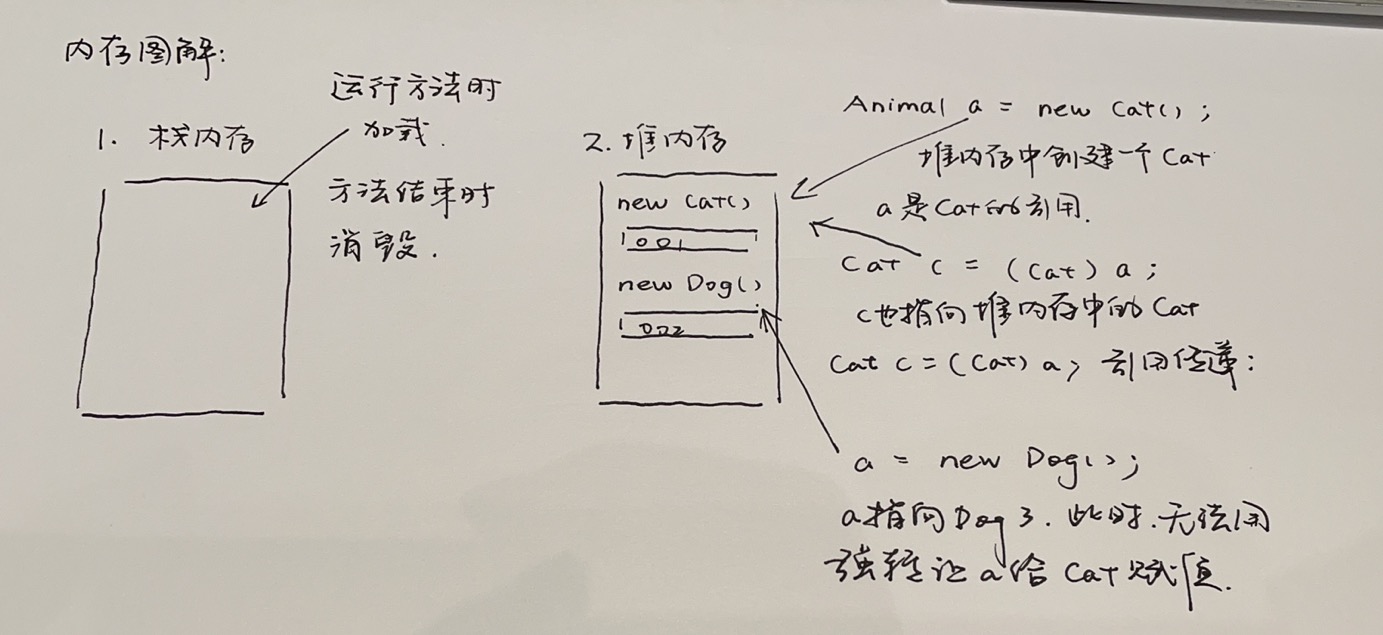 内存图解:
1. 栈内存
运行方法时
加载.
方法结束时
消毁.
2. 堆内存
new Cat()
001
new Dog()
002
Animal a = new Cat();
堆内存中创建一个 Cat
a 是 Cat 的引用.
Cat c = (Cat) a;
c也指向堆内存中的 Cat
Cat c = (Cat) a; 引用传递:
a = new Dog();
a指向Dog了. 此时. 无法用
强转让 a 给 Cat 赋值.